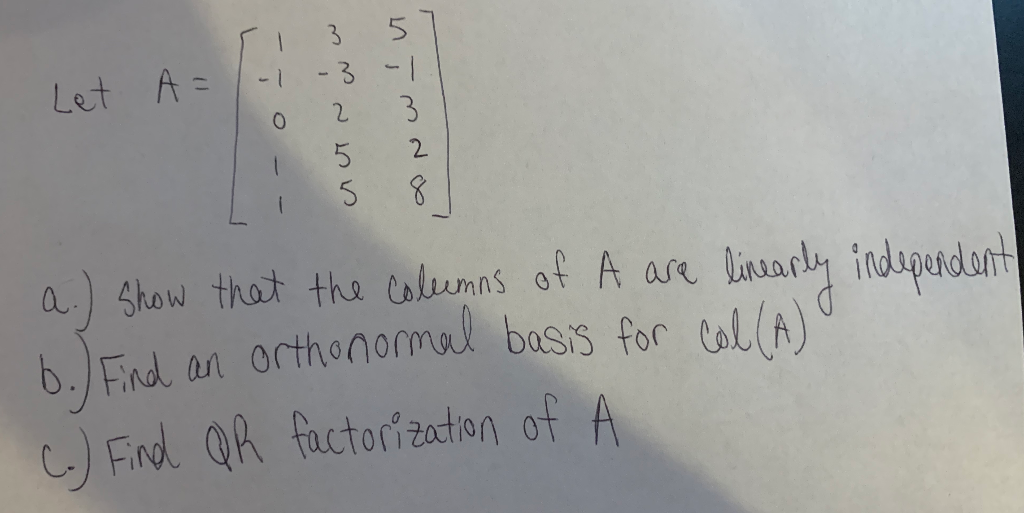 Let A = [ 1 3 5
-1 -3 -1
0 2 3
1 5 2
1 5 8 ]
a.) Show that the columns of A are linearly independent
b.) Find an orthonormal basis for Col(A)
c.) Find QR factorization of A